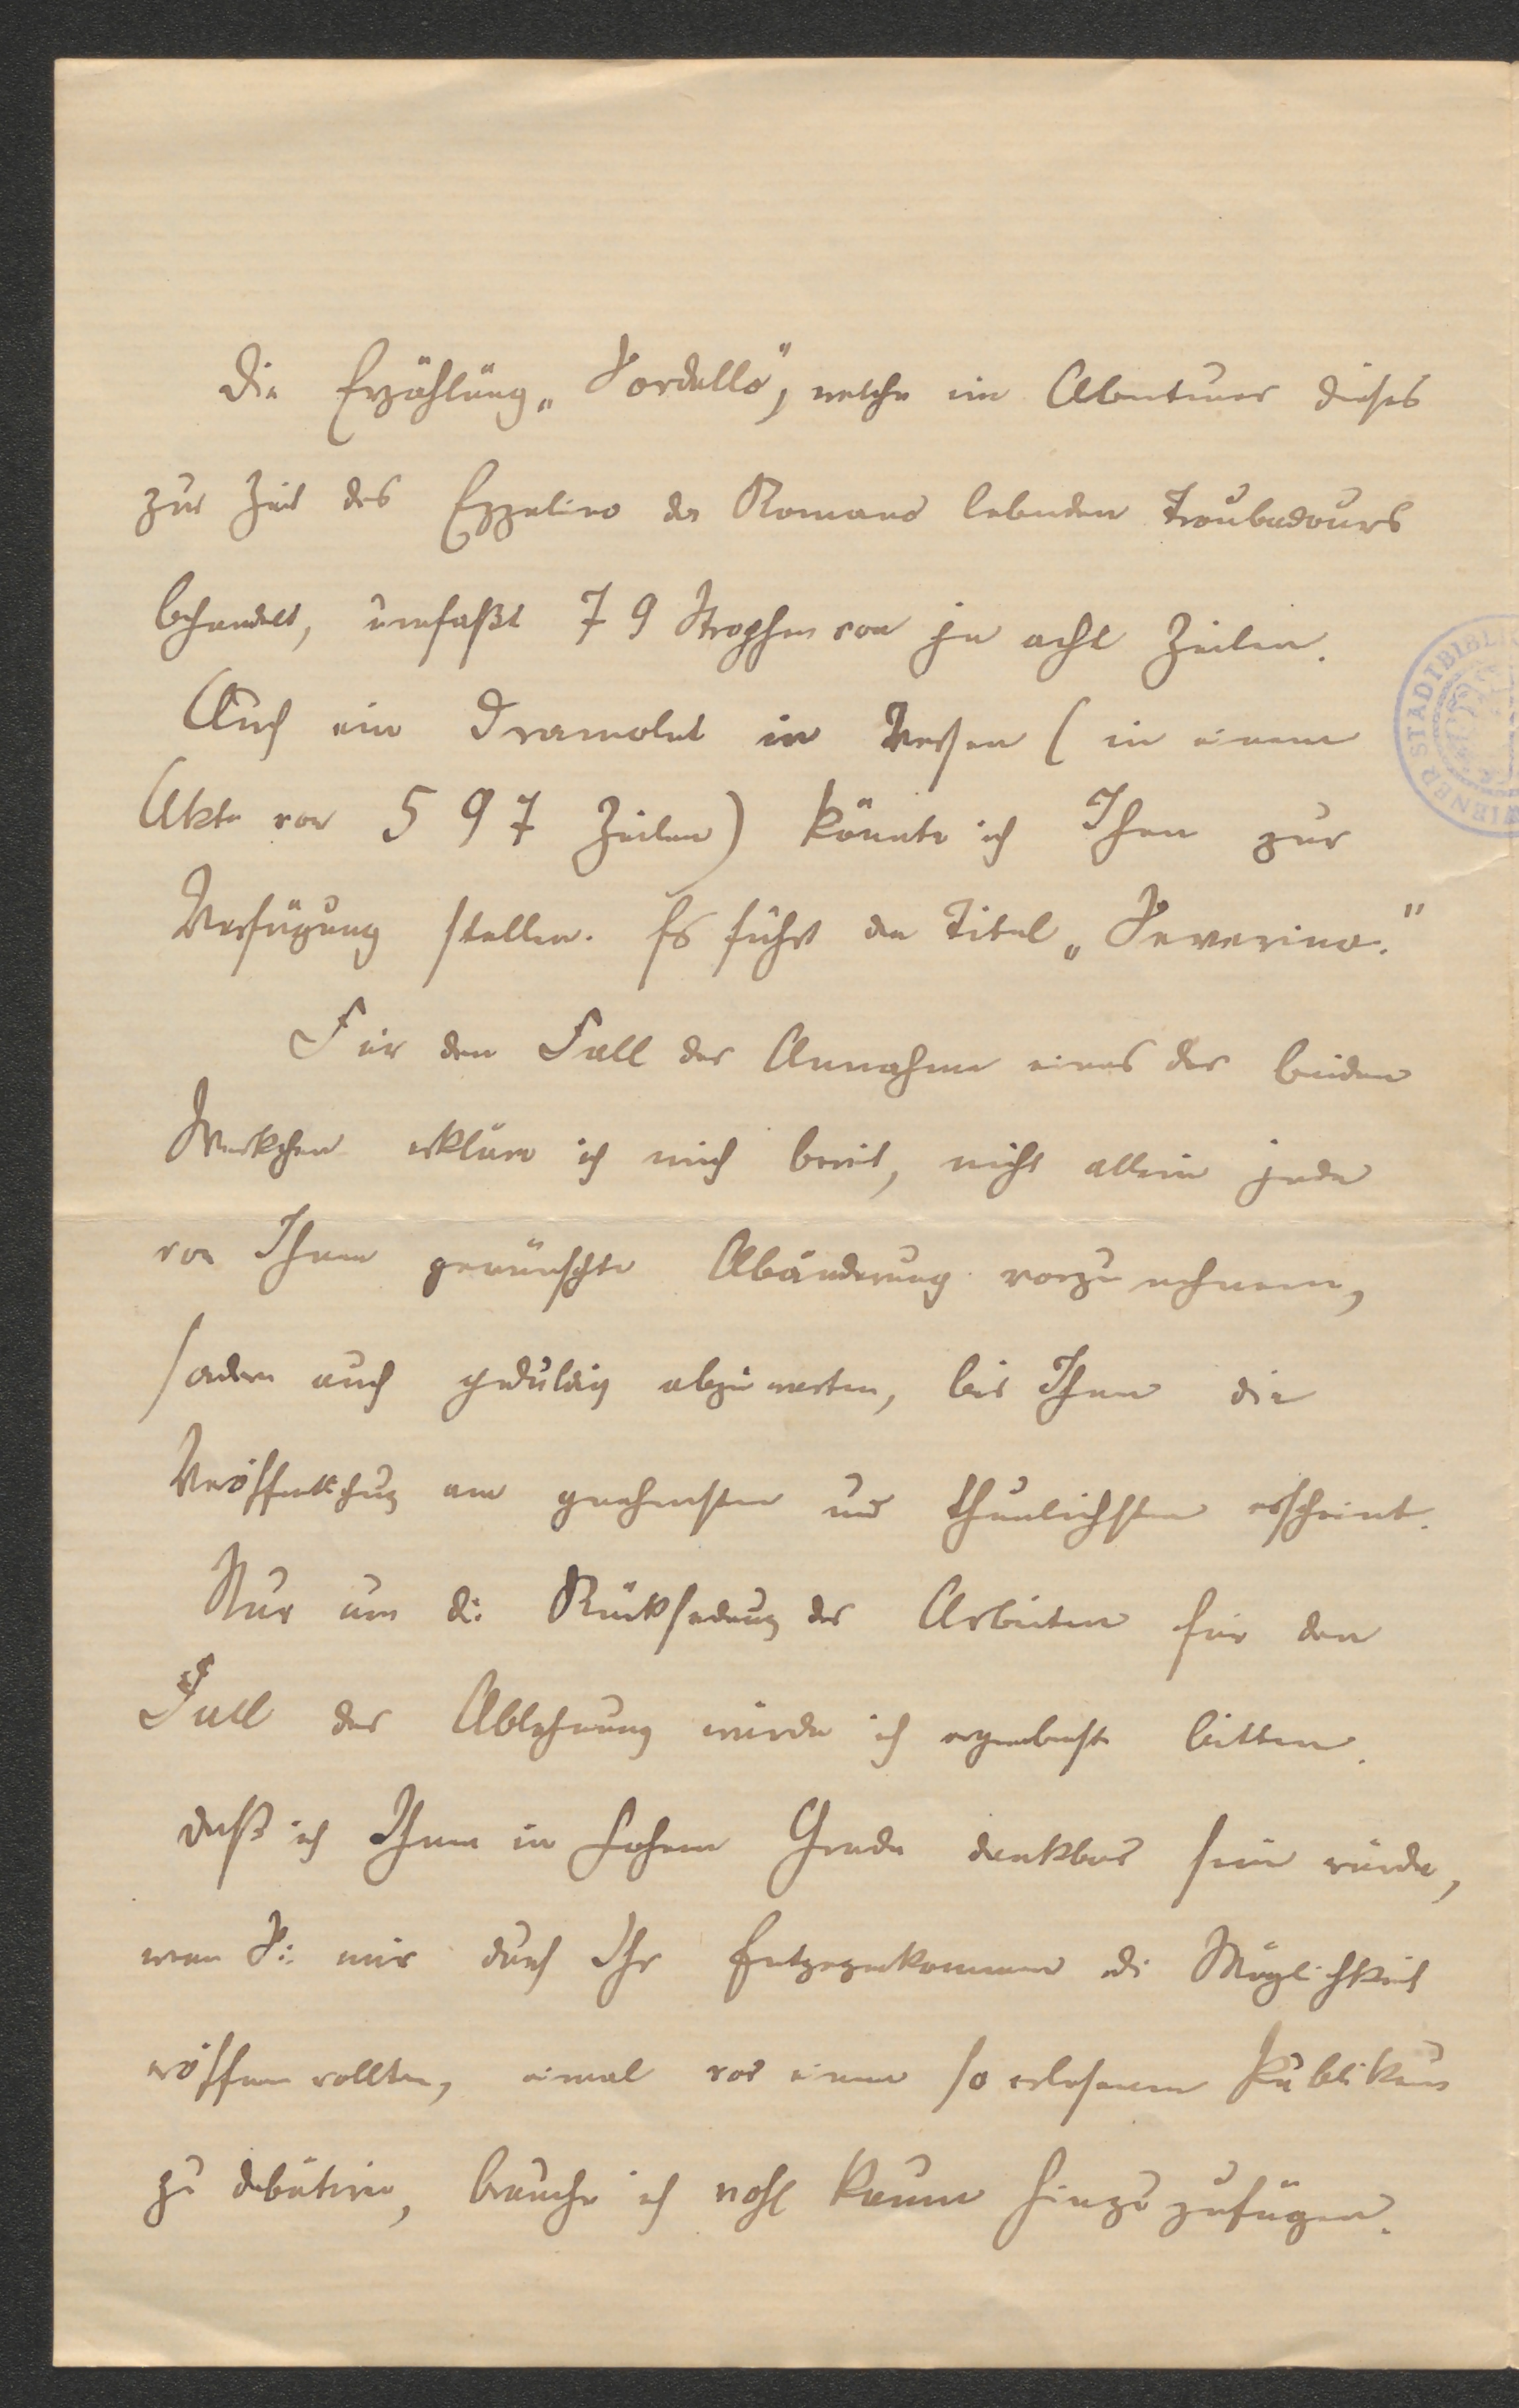 Die Erzählung „Sordello", welche ein Abenteuer dieses
zur Zeit des Ezzelino da Romano lebenden Troubadours
behandelt, umfaßt 79 Strophen von je acht Zeilen.
Auch ein Dramolet in Versen (in einem
Akte von 597 Zeilen) könnte ich Ihnen zur
Verfügung stellen. Es führt den Titel „Severina."
Für den Fall der Annahme eines der beiden
Werkchen erkläre ich mich bereit, nicht allein jede
von Ihnen gewünschte Abänderung vorzunehmen,
sondern auch geduldig abzuwarten, bis Ihnen die
Veröffentlichung am genehmsten und thunlichsten erscheint.
Nur um die Rücksendung der Arbeiten für den
Fall der Ablehnung würde ich ergebenst bitten.
Daß ich Ihnen in hohem Grade dankbar sein würde,
wenn Sie mir durch Ihr Entgegenkommen die Möglichkeit
eröffnen wollten, einmal vor einem so erlesenen Publikum
zu debütiren, brauche ich wohl kaum hinzuzufügen.
WIENER STADTBIBLI